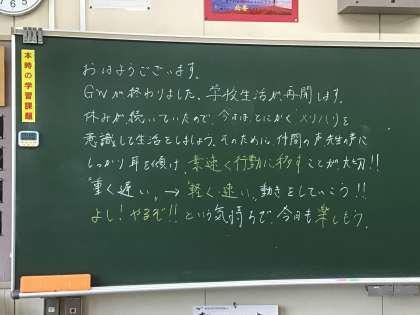 本時の学習課題
おはようございます。
GWが終わりました。学校生活が再開します。
休みが続いていたので、今日は、とにかくメリハリを
意識して生活をしましょう。そのために、仲間の声、先生の声に
しっかり耳を傾け、素速く行動に移すことが大切!!
"重く遅い"→"軽く速い"動きをしていこう!!
よし!やるぞ!!という気持ちで、今日も楽しもう。